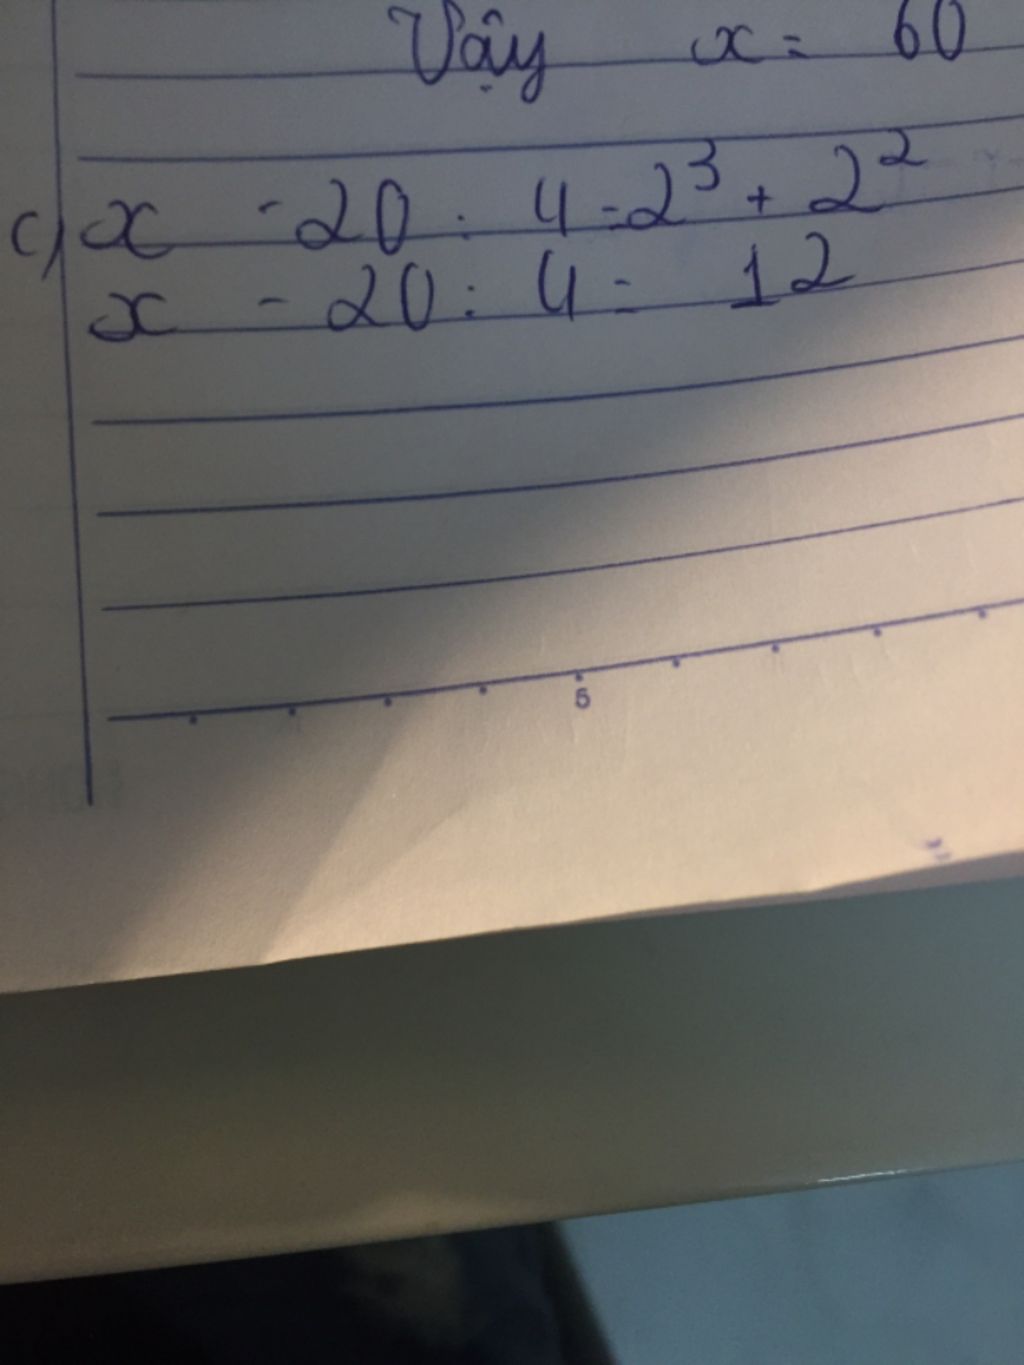 Vậy x = 60
c) x - 20 : 4 = 2³ + 2²
x - 20 : 4 = 12
5